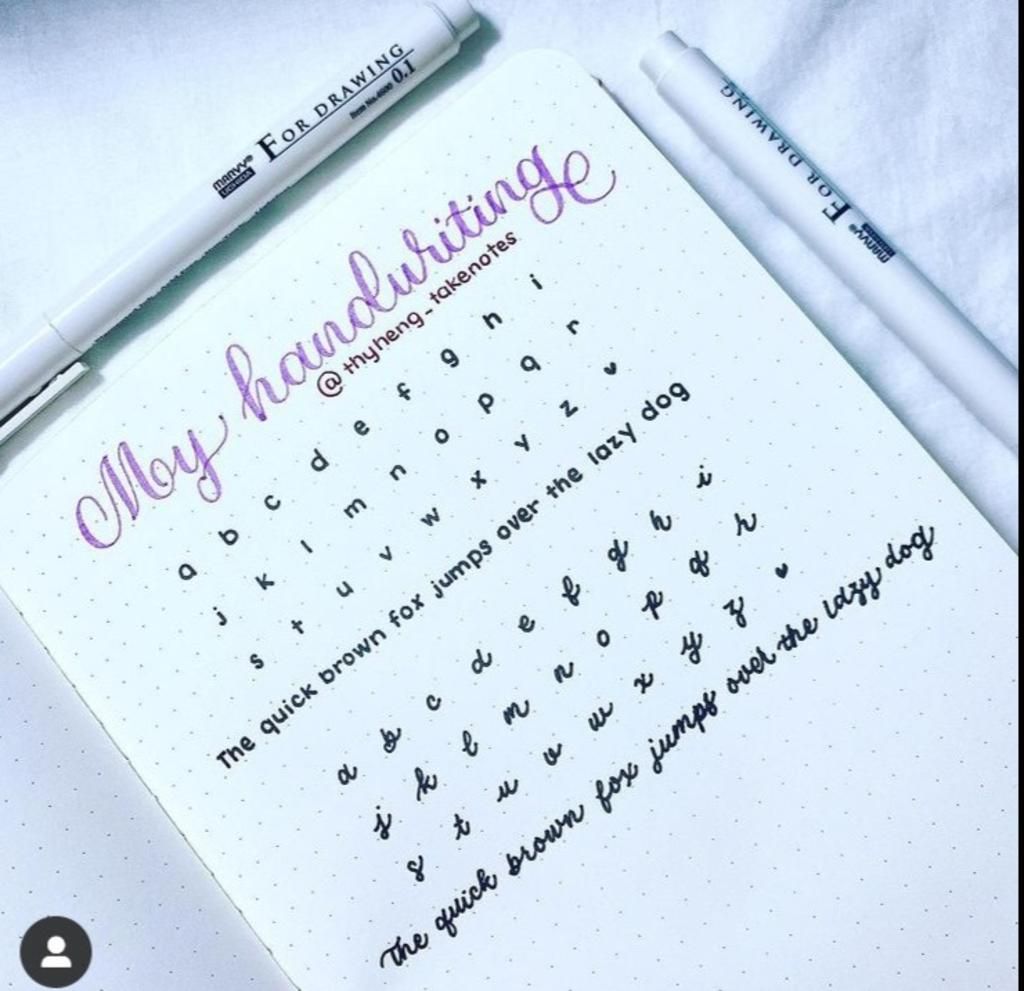 MARVY®
UCHIDA
FOR DRAWING
Item No.4600 0.1
MARVY®
FOR DRAWING
My handwriting
@thyheng_takenotes
a b c d e f g h i
j k l m n o p q r
s t u v w x y z ♥
The quick brown fox jumps over the lazy dog
a b c d e f g h i
j k l m n o p q r
s t u v w x y z ♥
The quick brown fox jumps over the lazy dog